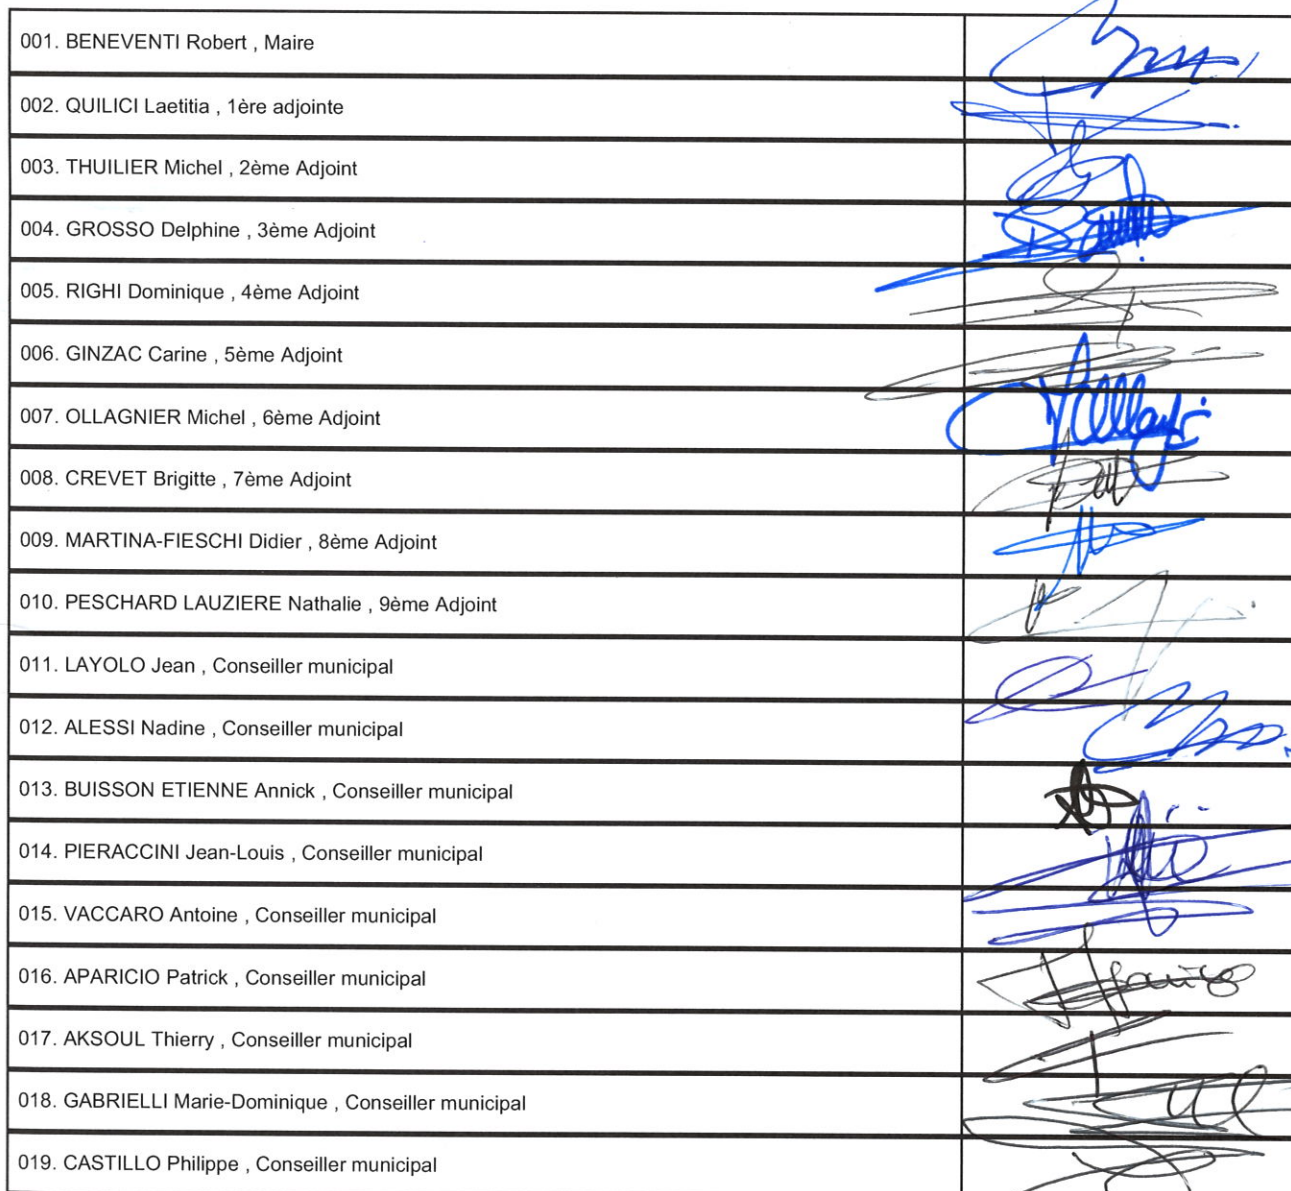 001. BENEVENTI Robert , Maire
002. QUILICI Laetitia , 1ère adjointe
003. THUILIER Michel , 2ème Adjoint
004. GROSSO Delphine , 3ème Adjoint
005. RIGHI Dominique , 4ème Adjoint
006. GINZAC Carine , 5ème Adjoint
007. OLLAGNIER Michel , 6ème Adjoint
008. CREVET Brigitte , 7ème Adjoint
009. MARTINA-FIESCHI Didier , 8ème Adjoint
010. PESCHARD LAUZIERE Nathalie , 9ème Adjoint
011. LAYOLO Jean , Conseiller municipal
012. ALESSI Nadine , Conseiller municipal
013. BUISSON ETIENNE Annick , Conseiller municipal
014. PIERACCINI Jean-Louis , Conseiller municipal
015. VACCARO Antoine , Conseiller municipal
016. APARICIO Patrick , Conseiller municipal
017. AKSOUL Thierry , Conseiller municipal
018. GABRIELLI Marie-Dominique , Conseiller municipal
019. CASTILLO Philippe , Conseiller municipal